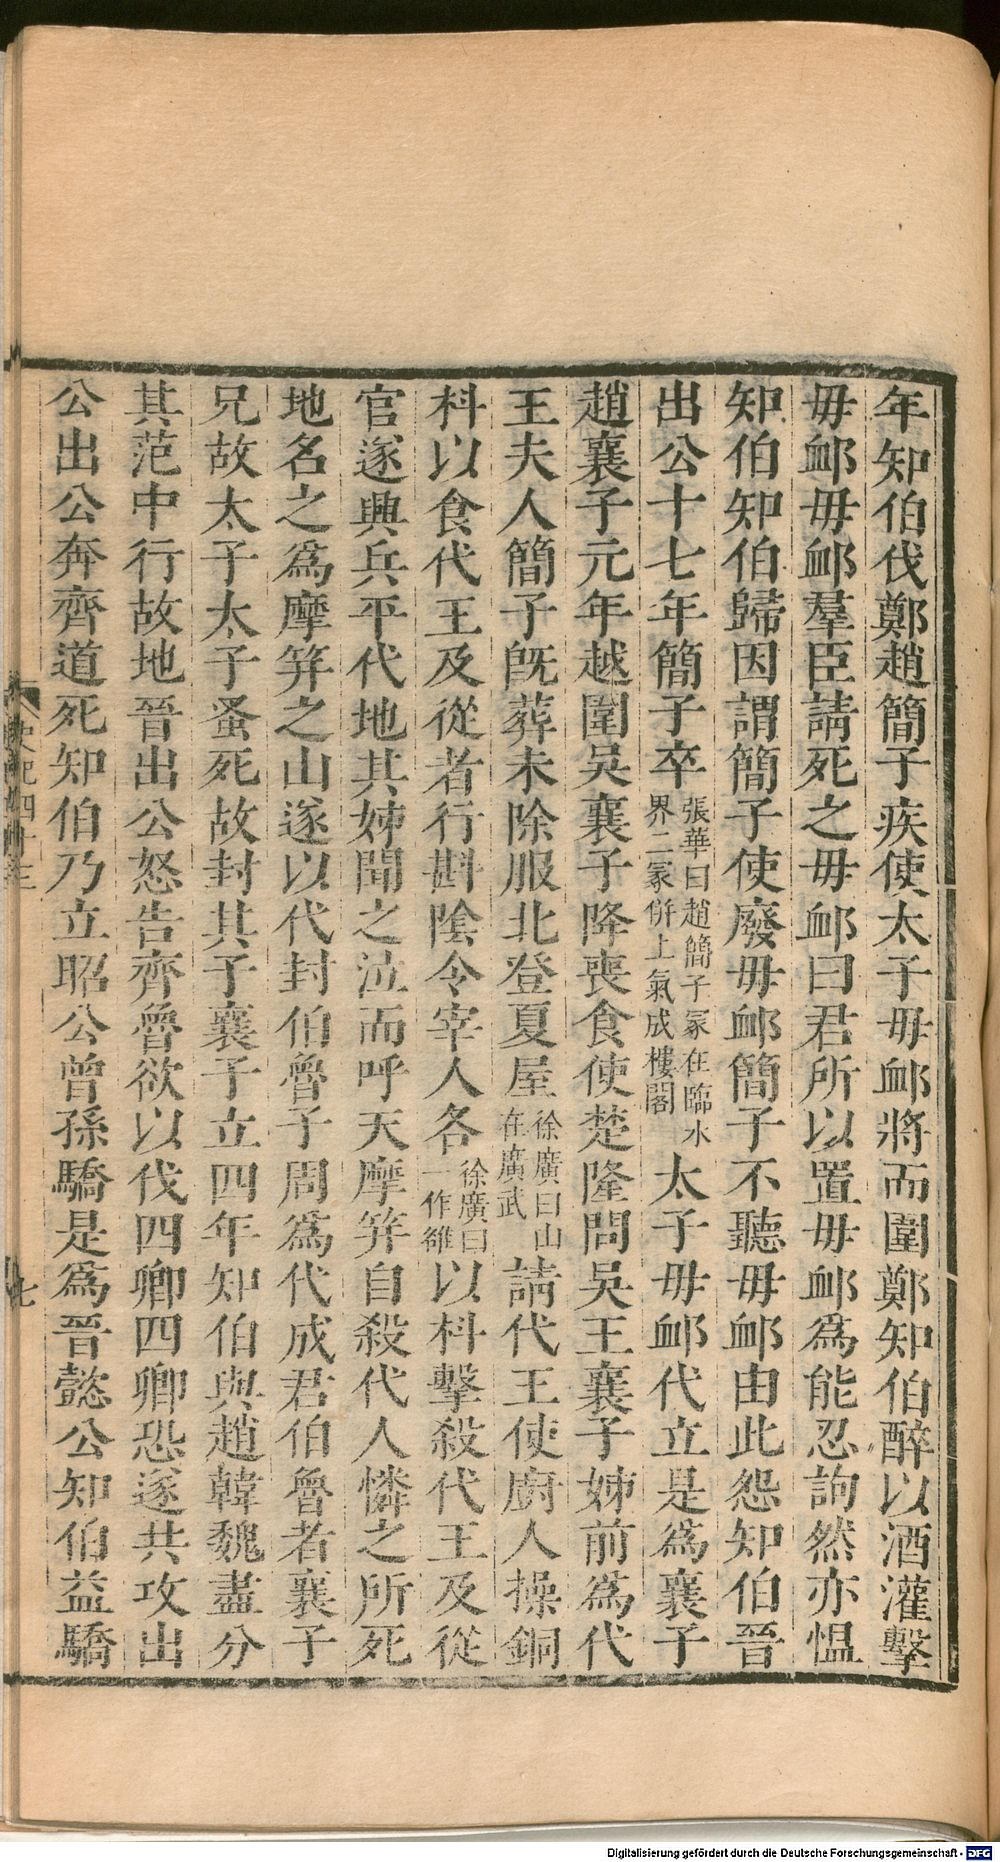 年知伯伐鄭趙簡子疾使太子毋䘏將而圍鄭知伯醉以酒灌擊
毋䘏毋䘏羣臣請死之毋䘏曰君所以置毋䘏爲能忍訽然亦愠
知伯知伯歸因謂簡子使廢毋䘏簡子不聽毋䘏由此怨知伯晉
出公十七年簡子卒張華曰趙簡子冢在臨水界二冢併上氣成樓閣太子毋䘏代立是爲襄子
趙襄子元年越圍吳襄子降喪食使楚隆問吳王襄子姊前爲代
王夫人簡子旣葬未除服北登夏屋徐廣曰山在廣武請代王使廚人操銅
枓以食代王及從者行斟陰令宰人各徐廣曰一作雒以枓擊殺代王及從
官遂興兵平代地其姊聞之泣而呼天摩筓自殺代人憐之所死
地名之爲摩筓之山遂以代封伯魯子周爲代成君伯魯者襄子
兄故太子太子蚤死故封其子襄子立四年知伯與趙韓魏盡分
其范中行故地晉出公怒告齊魯欲以伐四卿四卿恐遂共攻出
公出公奔齊道死知伯乃立昭公曾孫驕是爲晉懿公知伯益驕
史記四十三
七
Digitalisierung gefördert durch die Deutsche Forschungsgemeinschaft - DFG